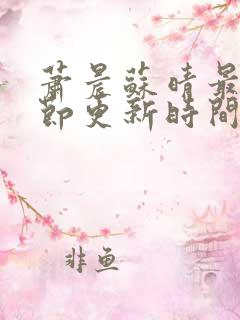 蕭晨蘇晴最
節更新時間
非鱼